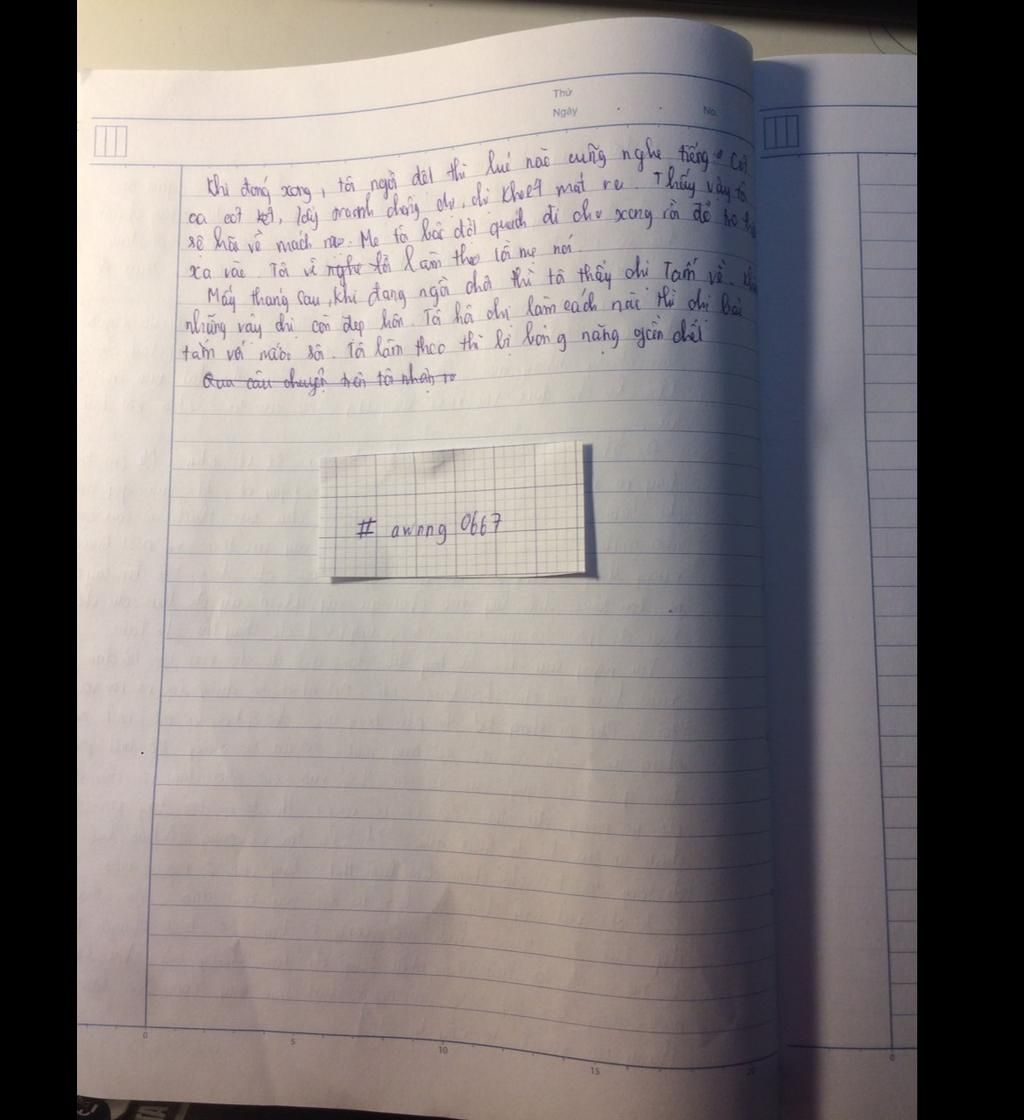 Thứ
Ngày . . No.
Khi đóng xong, tôi ngồi dệt thì lúc nào cũng nghe tiếng Cót
ca cót két, lấy tranh chồng chị, chị khoét mắt ra. Thấy vậy tô
sợ hãi về mách mẹ. Mẹ tôi bảo dệt quách đi cho xong rồi đổ tro
xa vào. Tôi vì nghe lời làm theo lời mẹ nói.
Mấy tháng sau, khi đang ngồi chơi thì tô thấy chị Tấm về.
những vậy chị còn đẹp hơn. Tô hỏi chị làm cách nào thì chị bảo
tắm với nước sôi. Tô làm theo thì bị bỏng nặng gần chết
Qua câu chuyện trên tôi nhận ra
# awnng 0667
0 5 10 15 20
0